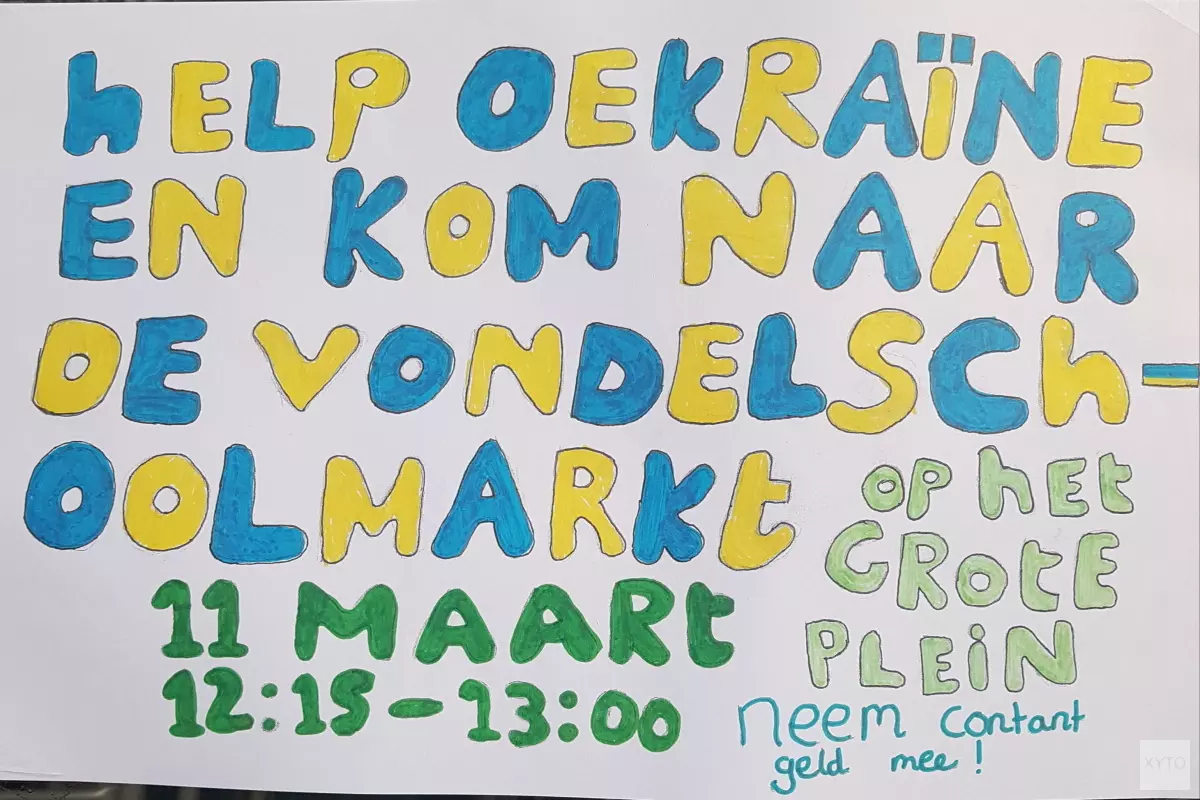 hELP OEKRAÏNE
EN KOM NAAR
DE VONDELSCh-
OOLMARKt
OP hEt
GROtE
PLEiN
11 MAARt
12:15-13:00
neem contant
geld mee!
XYTO